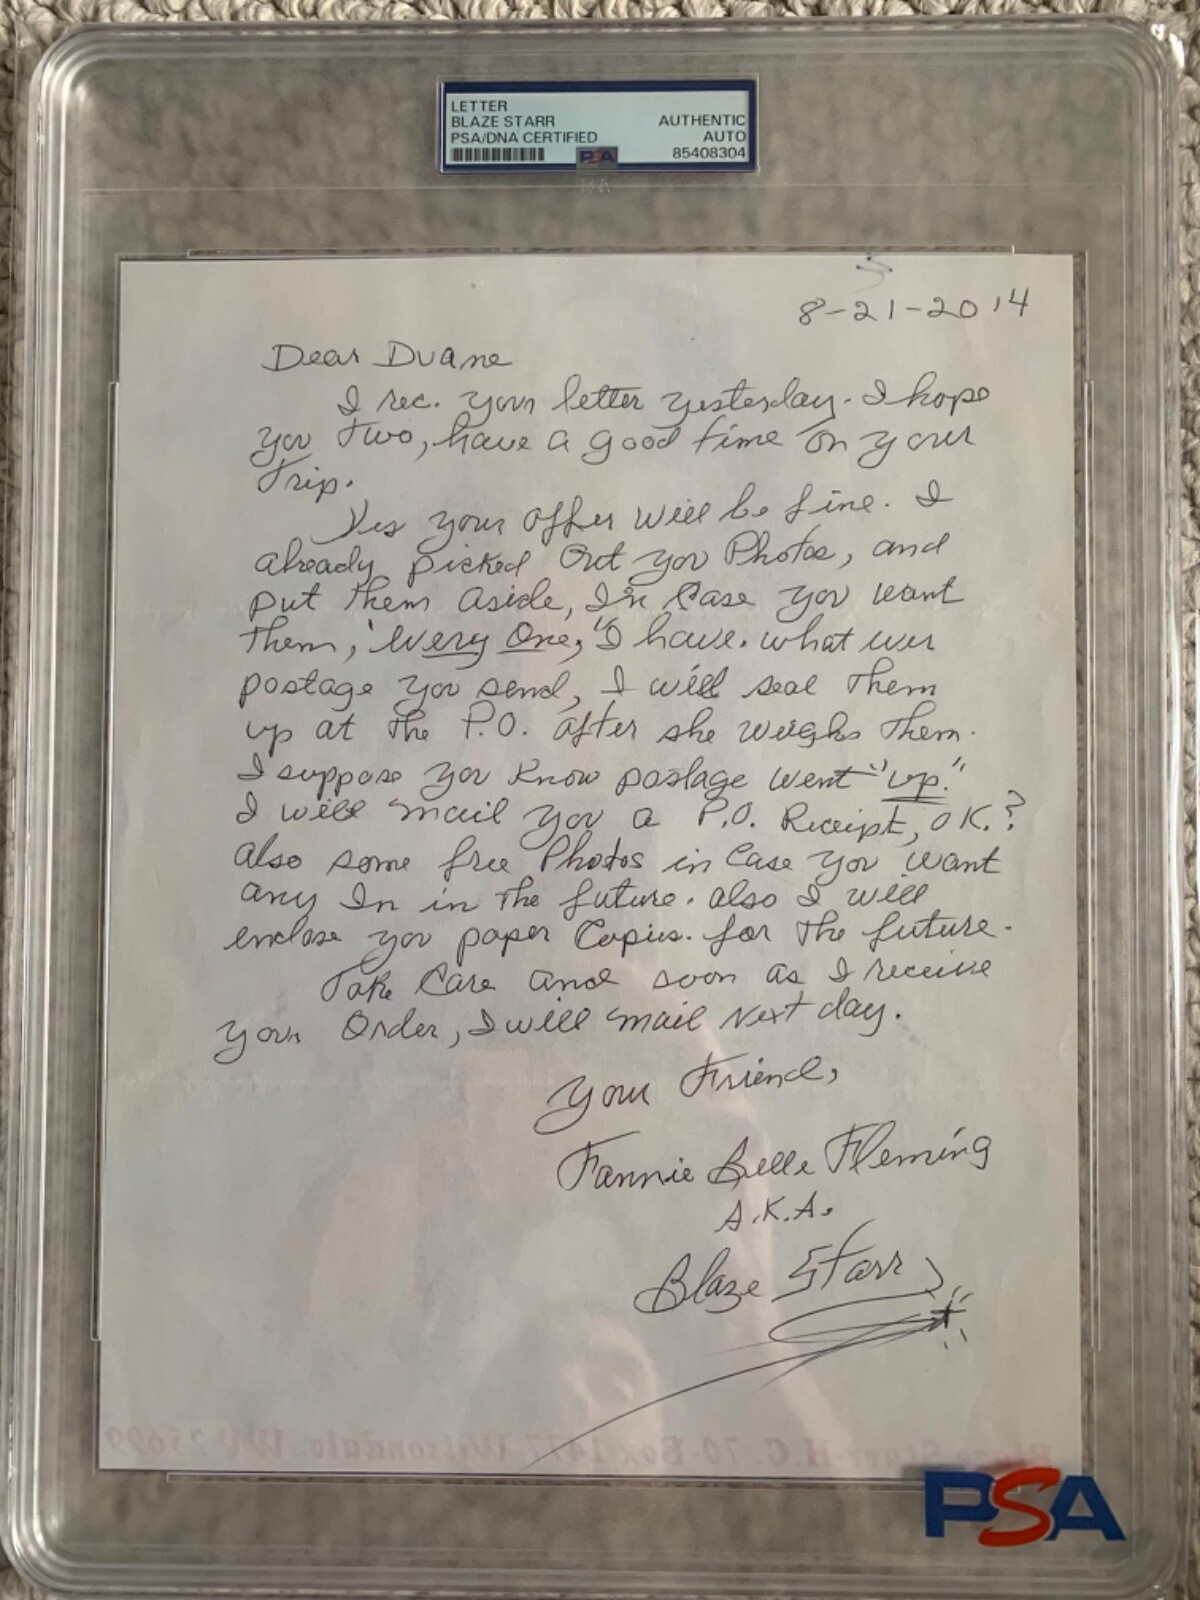 LETTER
BLAZE STARR
PSA/DNA CERTIFIED
AUTHENTIC
AUTO
85408304
PSA
8-21-2014
Dear Duane
I rec. your letter yesterday. I hope
you two, have a good time on your
trip.
Yes your offer will be fine. I
already picked out you Photos, and
put them aside, In Case you want
them, "every One," I have. what ever
postage you send, I will seal them
up at the P.O. after she weighs them.
I suppose you know postage went "up."
I will mail you a P.O. Receipt, OK.?
also some free Photos in Case you want
any In in the future. also I will
enclose you paper Copies. for the future.
Take Care and soon as I receive
your Order, I will mail next day.
Your Friend,
Fannie Belle Fleming
A.K.A.
Blaze Starr
Blaze Starr H.C. 70-Box 1477-Wilsondale, WV 25699
PSA